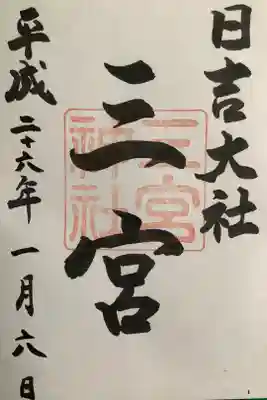 日吉大社
三宮
三宮
神社
平成二十六年一月六日